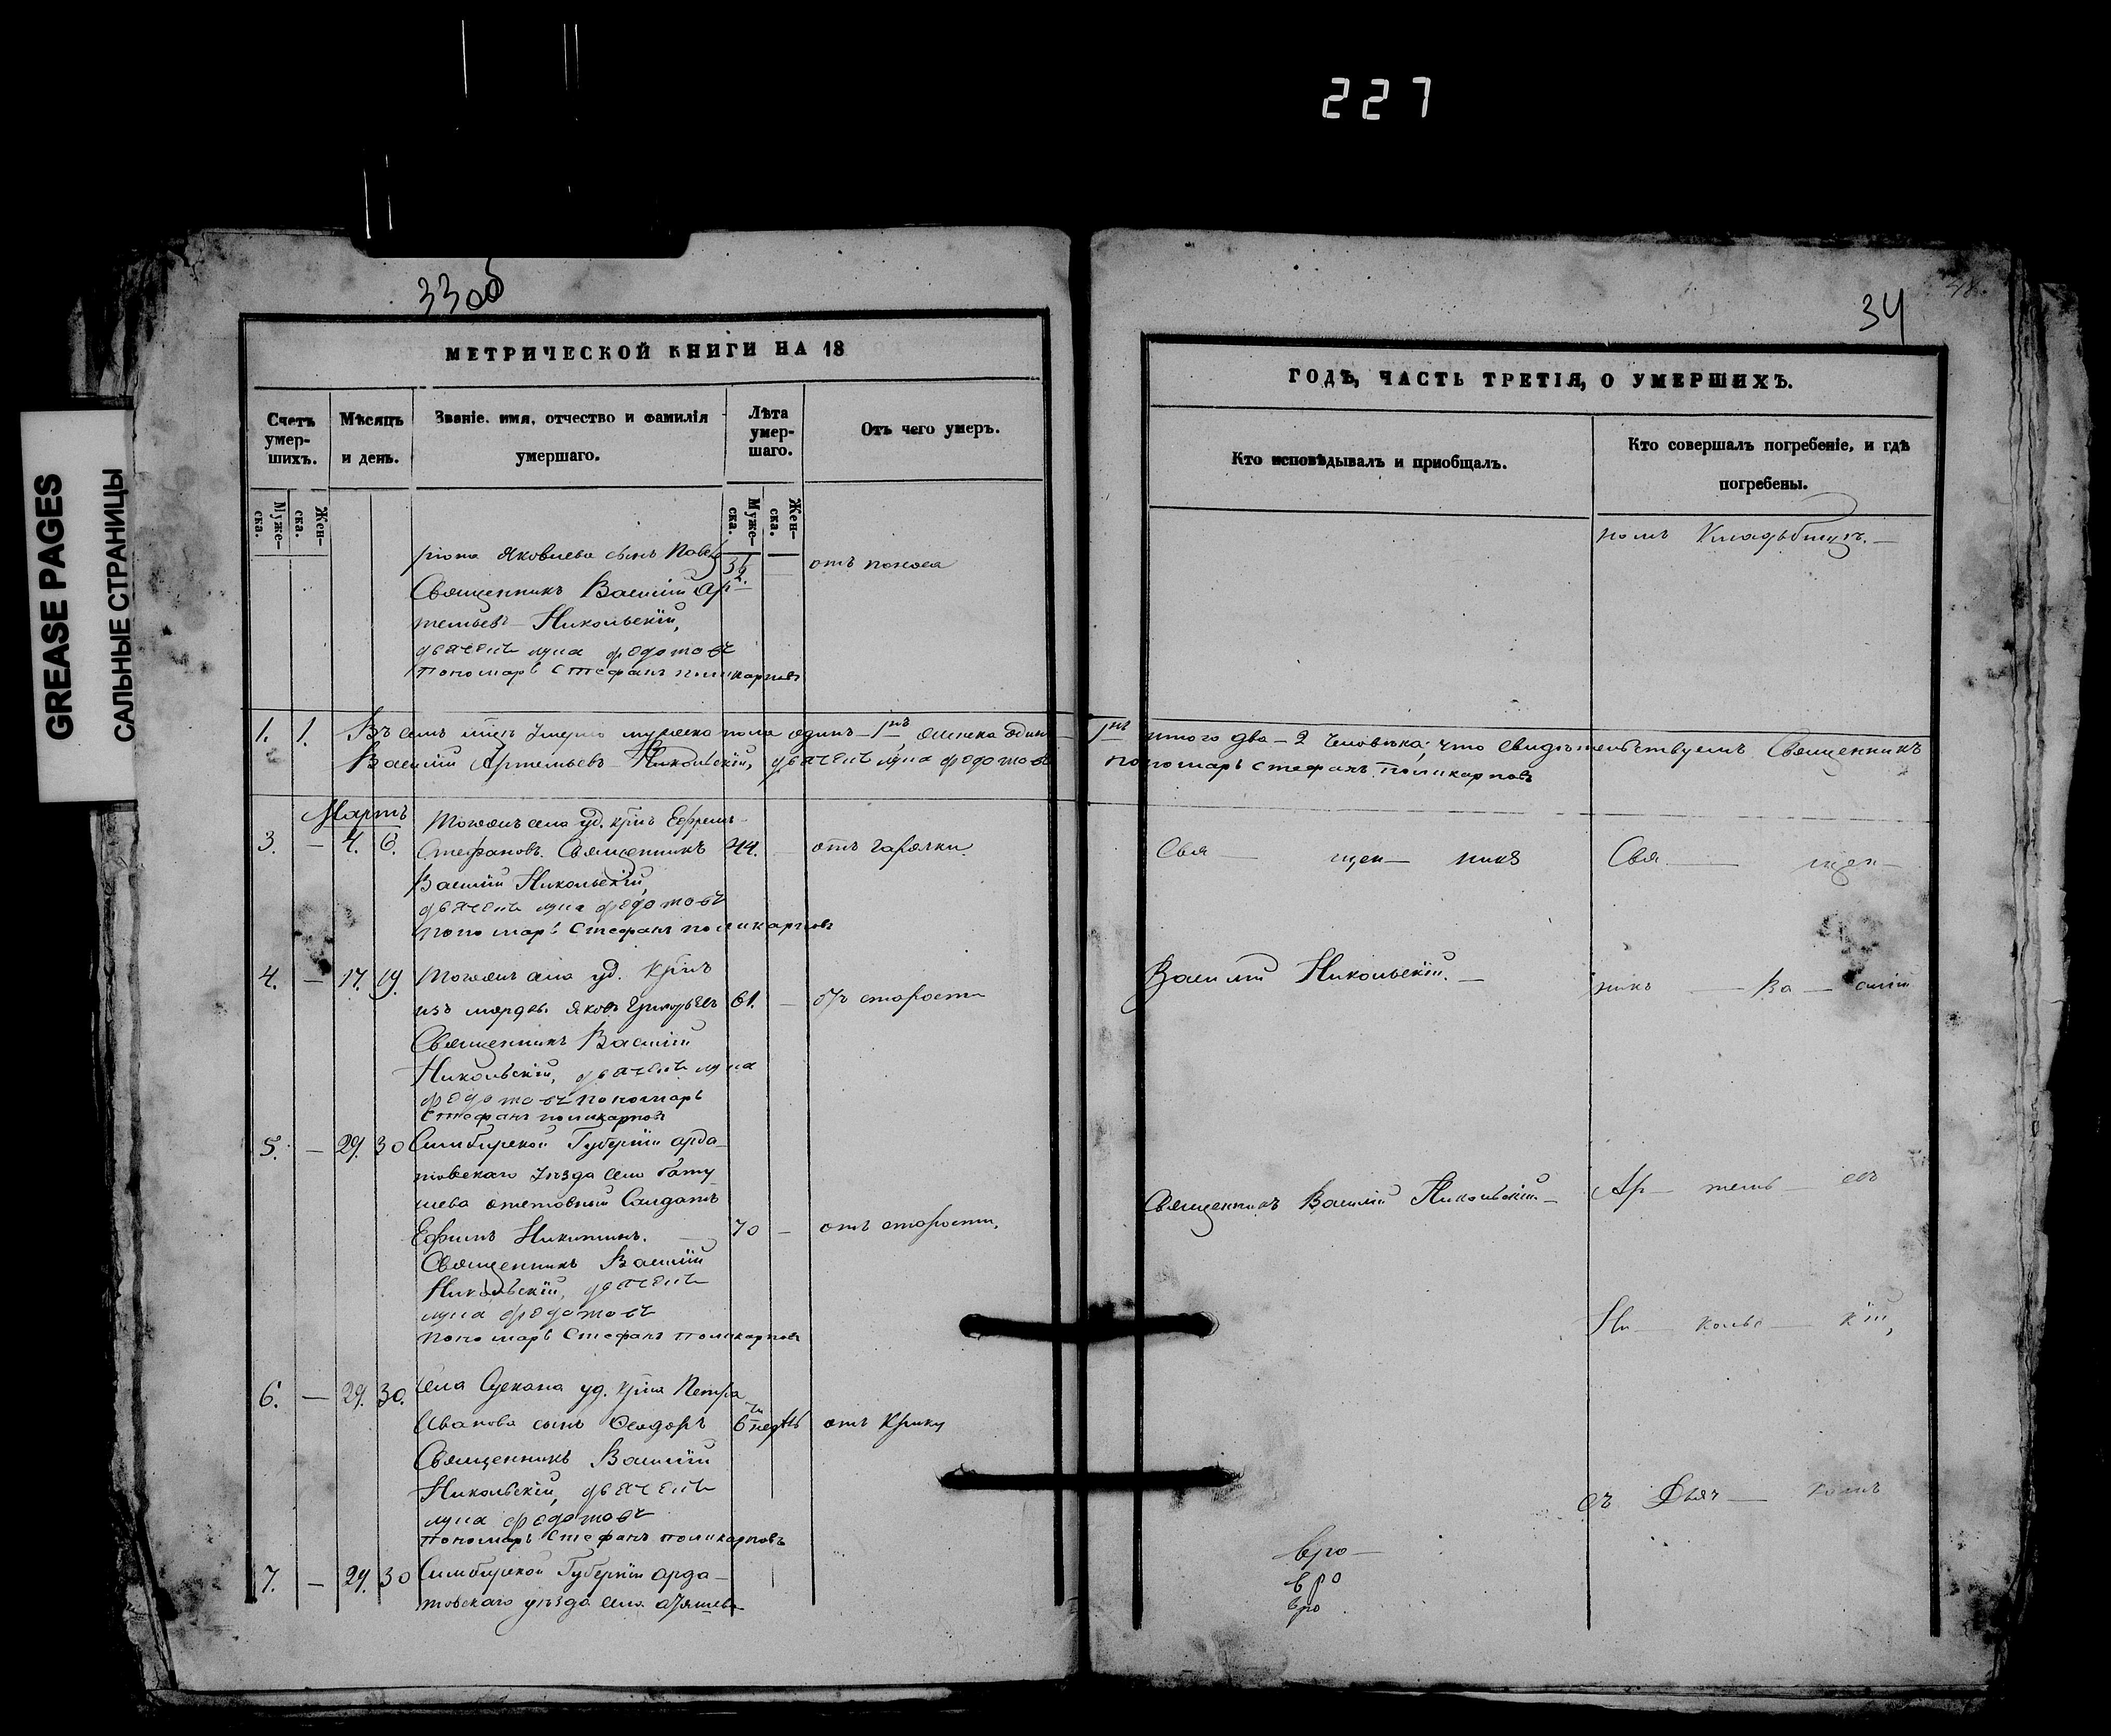 227
GREASE PAGES
САЛЬНЫЕ СТРАНИЦЫ
33об
МЕТРИЧЕСКОЙ КНИГИ НА 18
Счетъ умер-шихъ.
Мѣсяцъ и день.
Званіе, имя, отчество и фамилія умершаго.
Лѣта умер-шаго.
Отъ чего умеръ.
Муже-ска.
Жен-ска.
Муже-ска.
Жен-ска.
Яковлева сынъ отъ поноса
Священникъ Василій Ар-
темьевъ Никольскій,
дьячекъ лука федотовъ
пономарь Стефанъ поликарповъ
1. 1. Въ семъ мцѣ умерло мужеска пола одинъ
Василій Артемьевъ Никольскій, дьячекъ лука федотовъ
Мартъ
3. — 4. 6. Тогожъ села уд. крнъ Ефремъ
Стефановъ. Священникъ 44. отъ гарячки
Василій Никольскій,
дьячекъ лука федотовъ
пономарь Стефанъ поликарповъ
4. — 17. 19. Тогожъ села уд. крнъ
изъ мордвы Яковъ Григорьевъ 61. — отъ старости
Священникъ Василій
Никольскій, дьячекъ лука
федотовъ пономарь
Стефанъ поликарповъ
5. — 29. 30 Симбирской Губерніи арда-
товскаго уѣзда села
шева отставный Салдатъ
Ефимъ Никитинъ. 70 — отъ старости.
Священникъ Василій
Никольскій, дьячекъ
лука федотовъ
пономарь Стефанъ поликарповъ
6. — 29. 30. Села уд. крна Петра
Иванова сынъ Ѳеодоръ 6 недѣль отъ крику
Священникъ Василій
Никольскій, дьячекъ
лука федотовъ
пономарь Стефанъ поликарповъ
7. — 29. 30 Симбирской Губерніи арда-
товскаго уѣзда села
34
ГОДЪ, ЧАСТЬ ТРЕТІЯ, О УМЕРШИХЪ.
Кто исповѣдывалъ и пріобщалъ.
Кто совершалъ погребеніе, и гдѣ
погребены.
номъ Кладбищѣ. —
итого два — 2 человѣка; что свидѣтельствуемъ Священникъ
пономарь стефанъ поликарповъ
Свя — щен — никъ
Свя — щен —
Василій Никольскій. —
никъ — Ва — силій
Священникъ Василій Никольскій —
Ар — темь — евъ
Ни — кольс — кій,
съ Дьяч — комъ